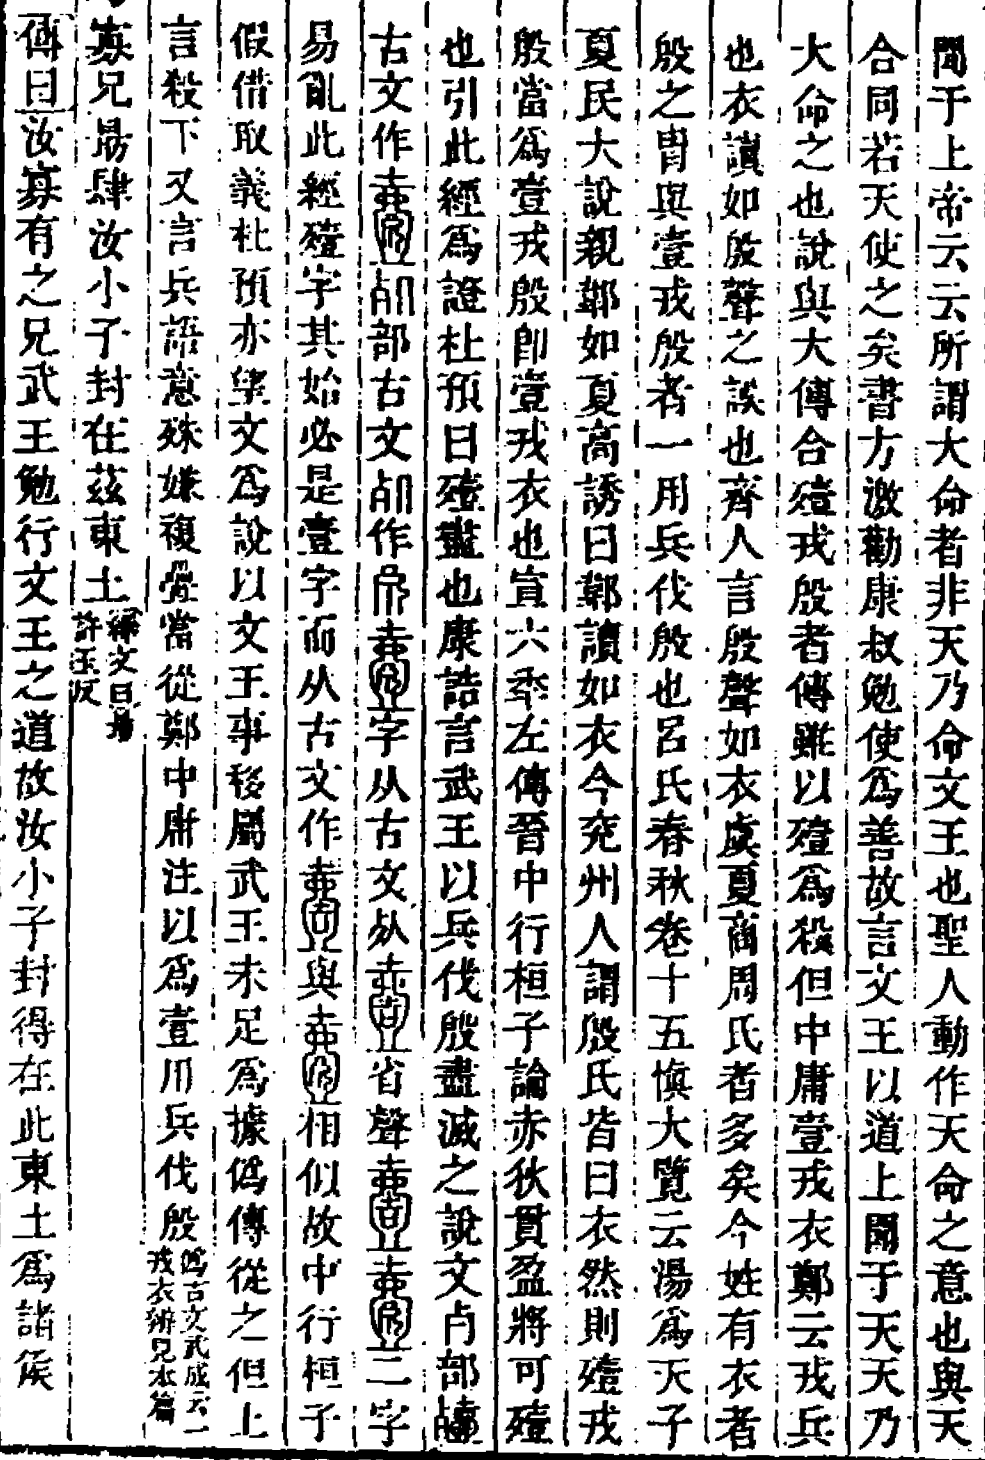 聞于上帝云云所謂大命者非天乃命文王也聖人動作天命之意也與天
合同若天使之矣書方激勸康叔勉使爲善故言文王以道上聞于天天乃
大命之也說與大傳合殪戎殷者傳雖以殪爲殺但中庸壹戎衣鄭云戎兵
也衣讀如殷聲之誤也齊人言殷聲如衣虞夏商周氏者多矣今姓有衣者
殷之胄與壹戎殷者一用兵伐殷也呂氏春秋卷十五愼大覽云湯爲天子
夏民大說親鄣如夏高誘曰鄣讀如衣今兖州人謂殷氏皆曰衣然則殪戎
殷當爲壹戎殷卽壹戎衣也宣六年左傳晉中行桓子論赤狄貫盈將可殪
也引此經爲證杜預曰殪盡也康誥言武王以兵伐殷盡滅之說文歺部殪
古文作部古文作字从古文从省聲二字
易亂此經殪字其始必是壹字而从古文作與相似故中行桓子
假借取義杜預亦望文爲說以文王事移屬武王未足爲據僞傳從之但上
言殺下又言兵語意殊嫌複疊當從鄭中庸注以爲壹用兵伐殷僞古文武成云一
戎衣辨見本篇
乃寡兄勗肆汝小子封在茲東土釋文曰勗
許玉反
傳曰汝寡有之兄武王勉行文王之道故汝小子封得在此東土爲諸侯